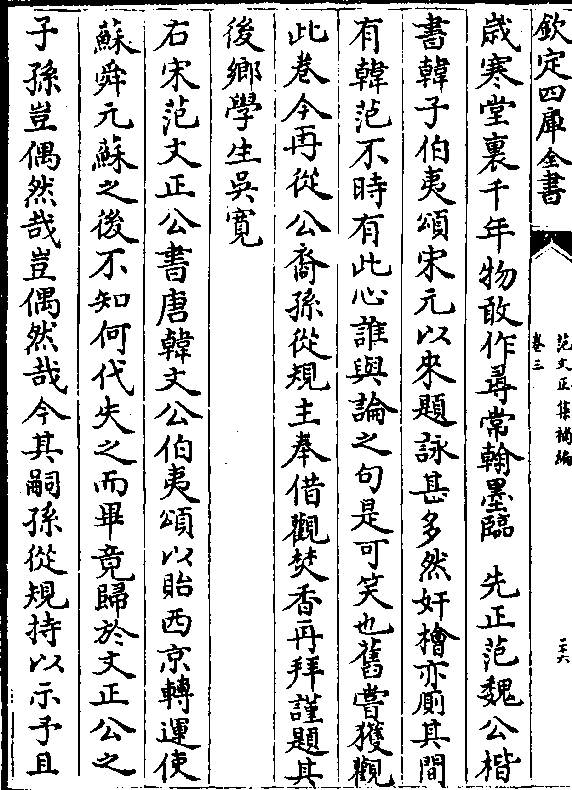 欽定四庫全書
范文正集補編
卷三
二十六
歲寒堂裏千年物敢作尋常翰墨臨　先正范魏公楷
書韓子伯夷頌宋元以來題詠甚多然奸檜亦廁其間
有韓范不時有此心誰與論之句是可笑也舊嘗獲觀
此卷今再從公裔孫從規主奉借觀焚香再拜謹題其
後鄉學生吳寛
右宋范文正公書唐韓文公伯夷頌以貽西京轉運使
蘇舜元蘇之後不知何代失之而畢竟歸於文正公之
子孫豈偶然哉豈偶然哉今其嗣孫從規持以示予且